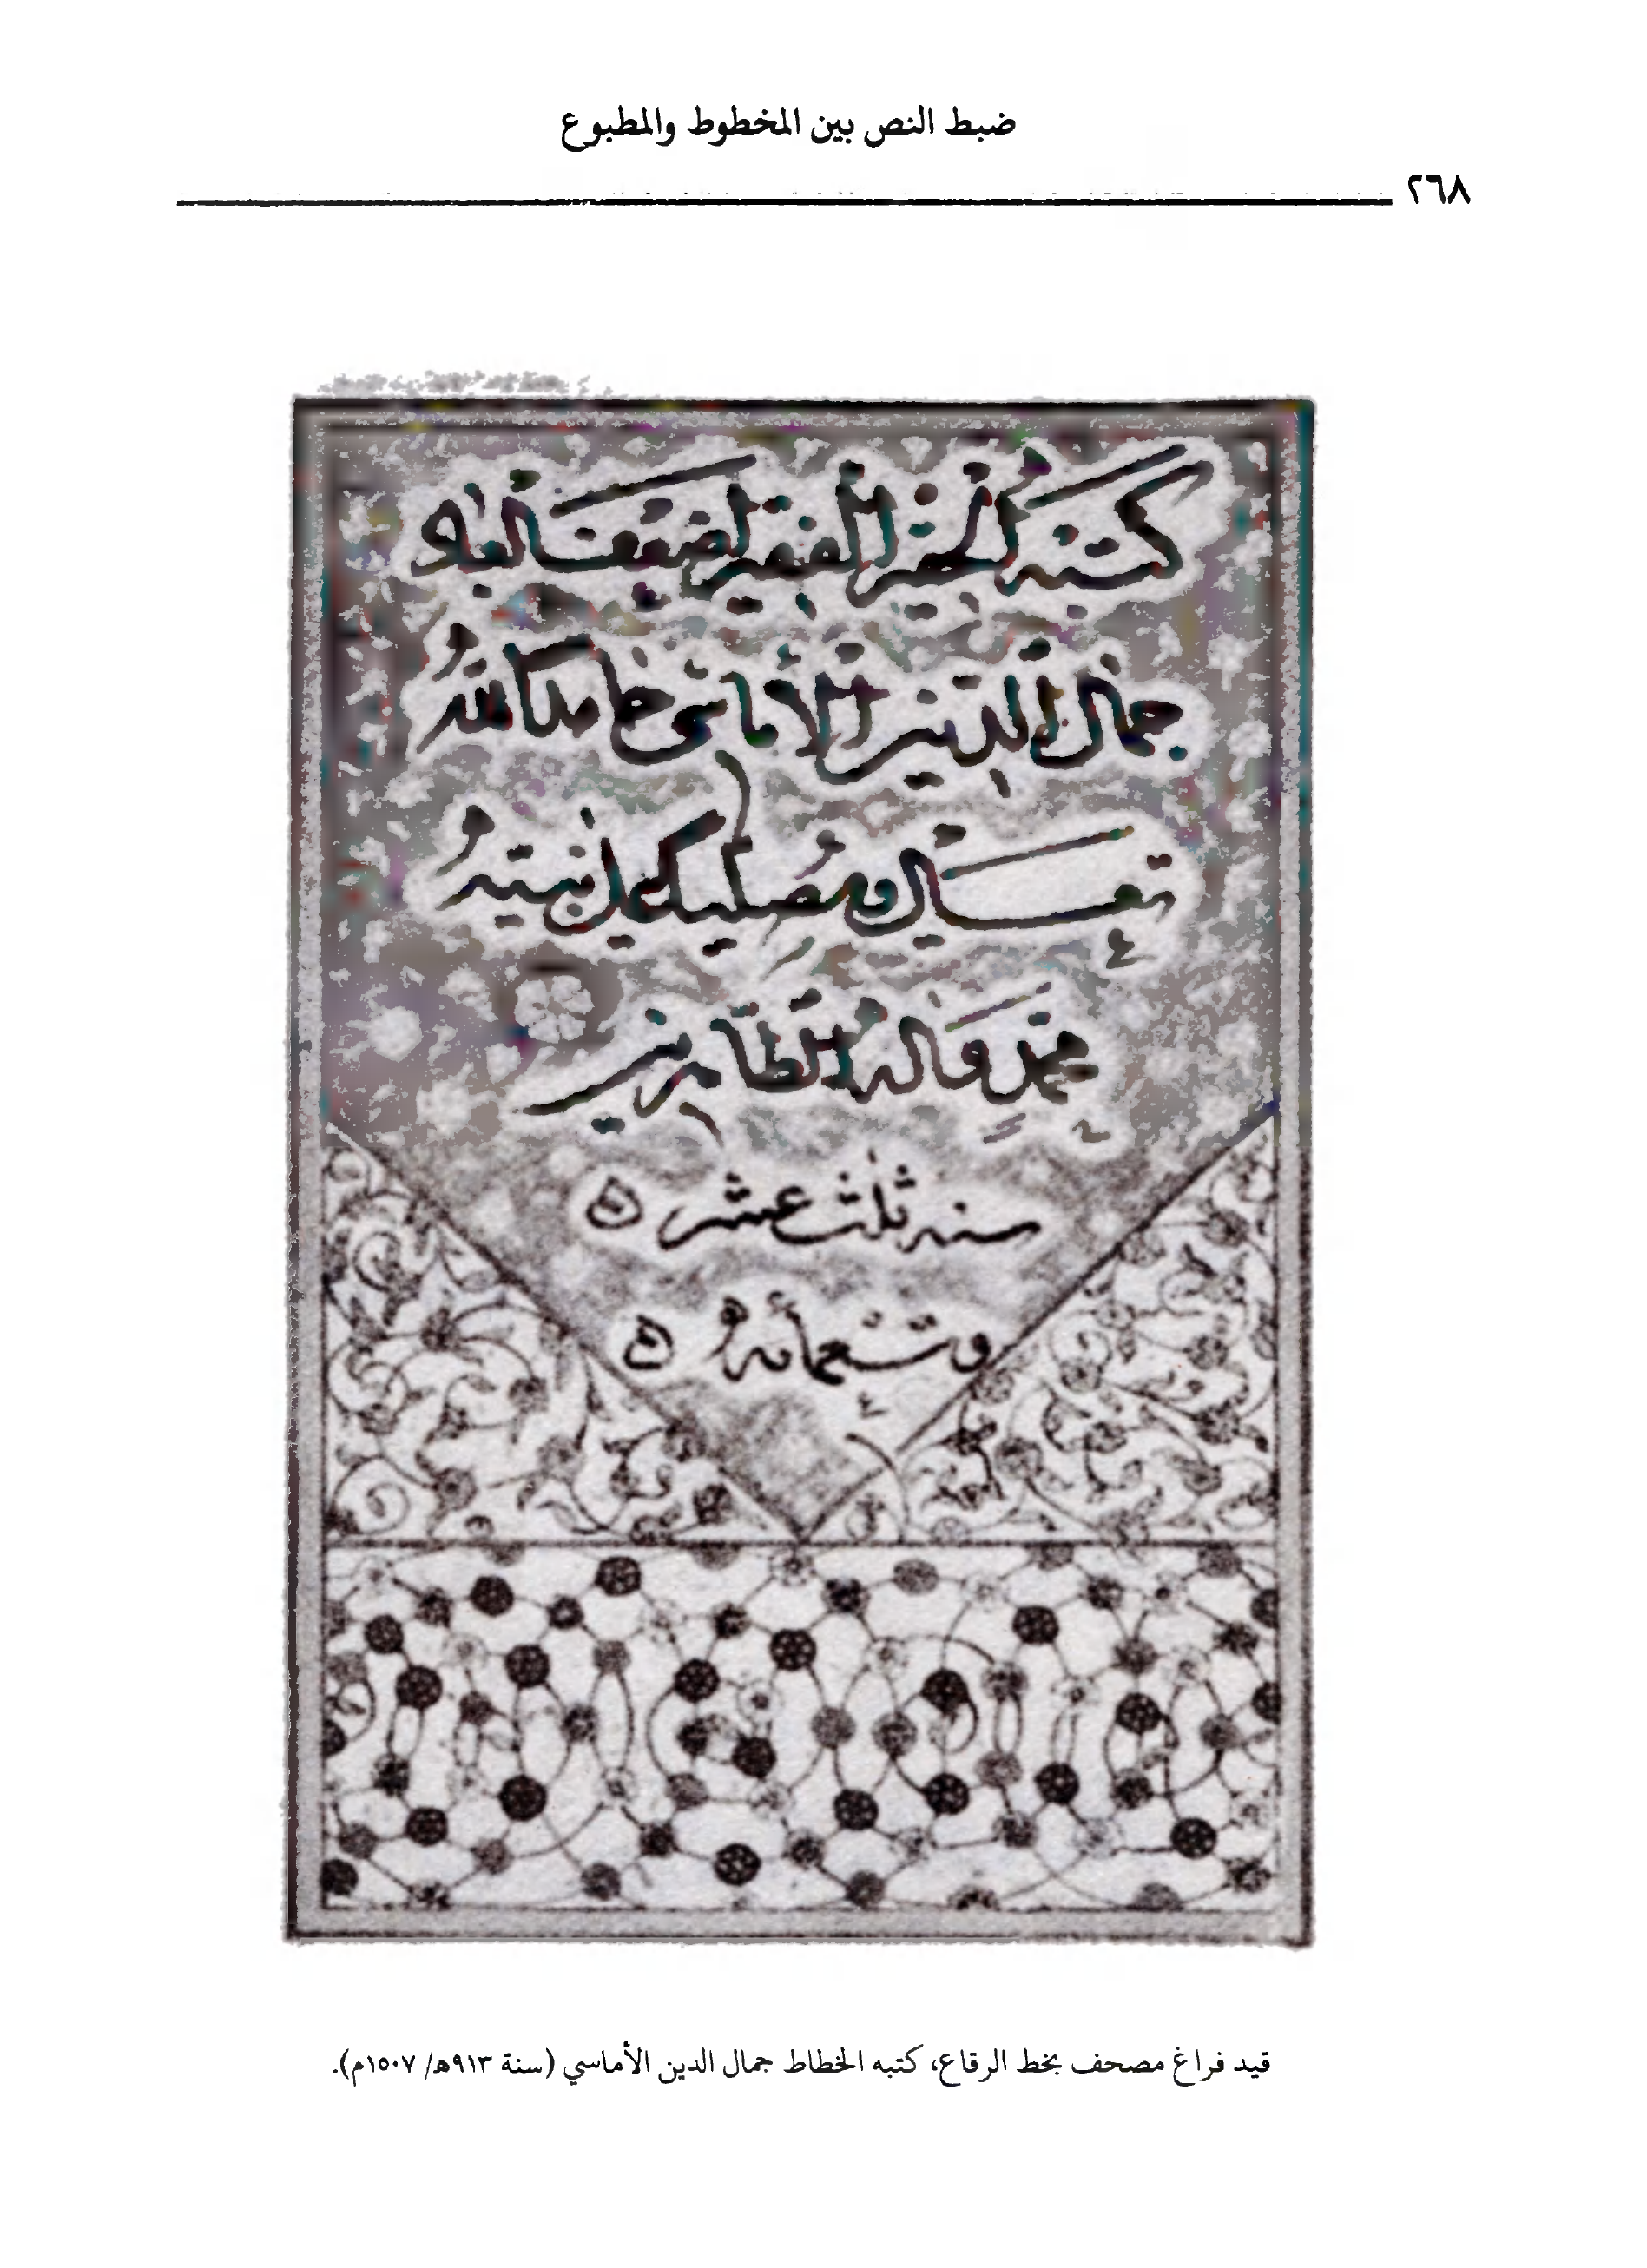 ضبط النص بين المخطوط والمطبوع
٢٦٨
كتبه الحقير الفقير اضعف العباد
جمال الدين الأماسي حامدا لله
تعالى ومصليا على نبيه
محمد وآله الطاهرين
سنه ثلث عشر ه
وتسعمائه ه
قيد فراغ مصحف بخط الرقاع، كتبه الخطاط جمال الدين الأماسي (سنة ٩١٣هـ/ ١٥٠٧م).